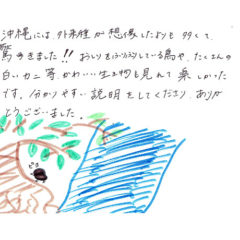 沖縄には、外来種が想像したよりも多くて、
驚きました!! おしりをふりふりしている鳥や、たくさんの
白いカニ等かわいい生き物も見れて楽しかった
です。分かりやすい説明をしてくださり、ありが
とうございました。